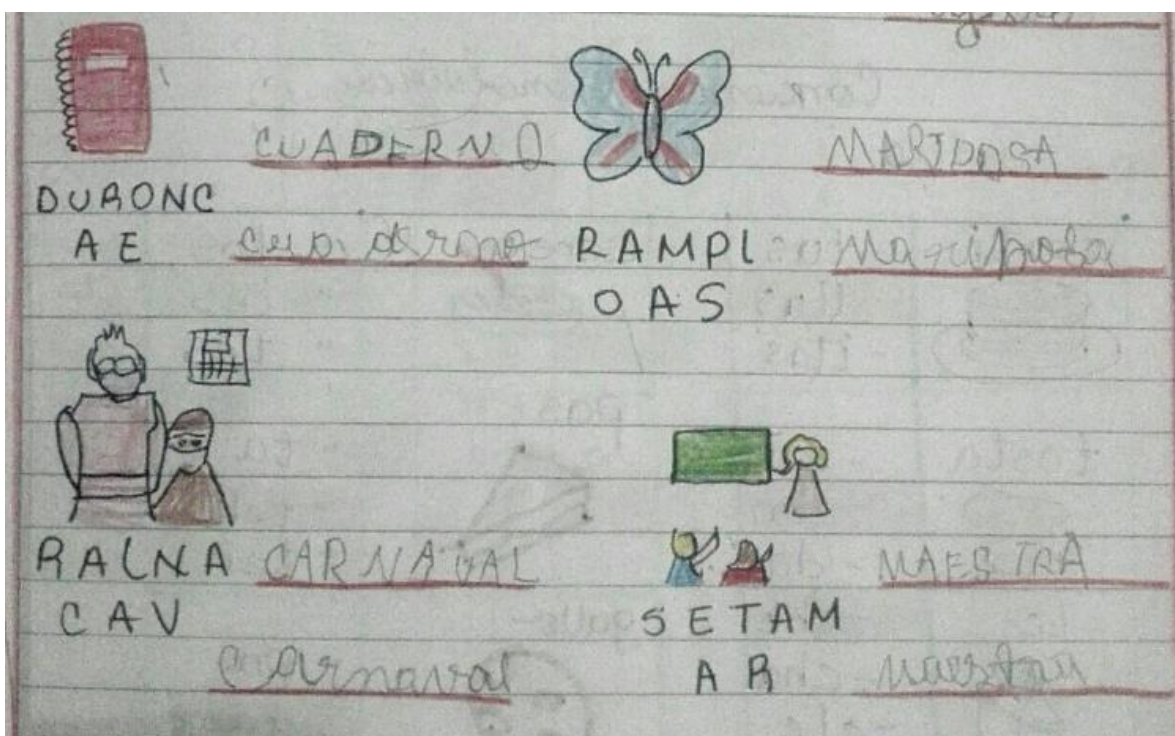 CUADERNO
MARIPOSA
DURONC
AE
cuaderno
RAMPI
Mariposa
OAS
RALNA
CARNAVAL
MAESTRA
CAV
SETAM
Carnaval
AR
maestra